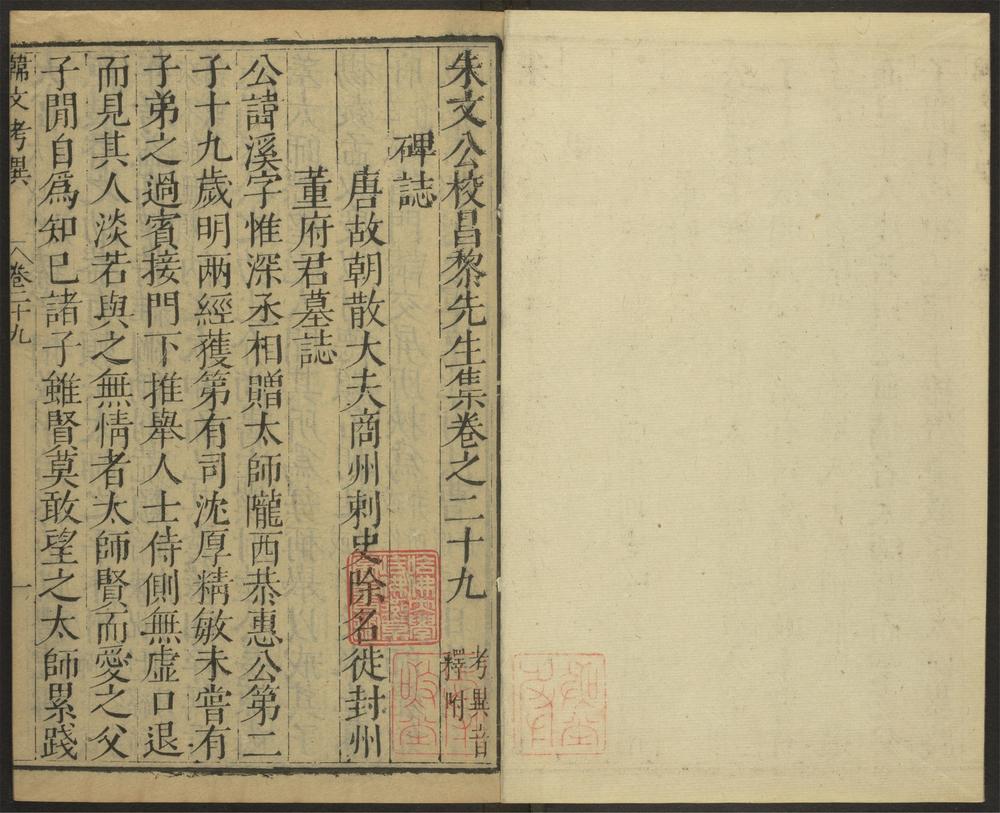 朱文公校昌黎先生集卷之二十九
考異音
釋附
碑誌
唐故朝散大夫商州刺史除名徙封州
董府君墓誌
公諱溪字惟深丞相贈太師隴西恭惠公第二
子十九歲明兩經獲第有司沈厚精敏未嘗有
子弟之過賓接門下推舉人士侍側無虛口退
而見其人淡若與之無情者太師賢而愛之父
子閒自爲知已諸子雖賢莫敢望之太師累踐
韓文考異
卷二十九
一